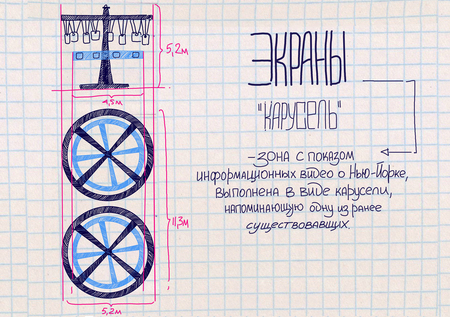 5,2м
4,5м
11,3м
5,2м
ЭКРАНЫ
"КАРУСЕЛЬ"
-ЗОНА С ПОКАЗОМ
ИНФОРМАЦИОННЫХ ВИДЕО О НЬЮ-ЙОРКЕ,
ВЫПОЛНЕНА В ВИДЕ КАРУСЕЛИ,
НАПОМИНАЮЩУЮ ОДНУ ИЗ РАНЕЕ
СУЩЕСТВОВАВШИХ.